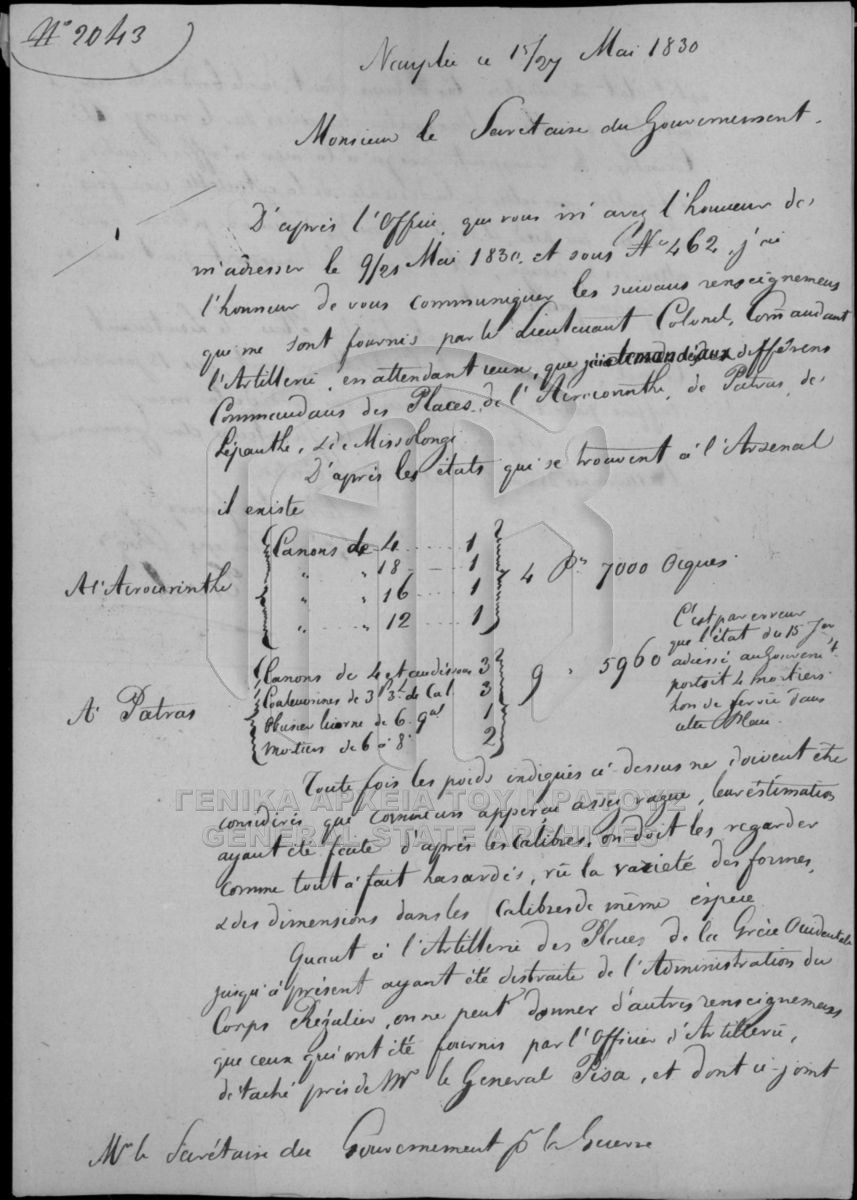 N° 2043
Nauplie ce 15/27 Mai 1830
Monsieur le Secrétaire du Gouvernement.
D'après l'Office, que vous m'avez l'honneur de
m'adresser le 9/21 Mai 1830, et sous N° 462, j'ai
l'honneur de vous communiquer les suivans renseignemens
que me sont fournis par le Lieutenant Colonel, Com̄andant
l'Artillerie, en attendant ceux, que j'ai demandé aux différens
Commandans des Places, de l'Acrocorinthe, de Patras, de
Lépanthe, & de Missolongi
D'après les états qui se trouvent à l'Arsenal
il existe
A l'Acrocorinthe
Canons de 4 ...... 1
" " 18 ...... 1
" " 16 ...... 1
" " 12 ...... 1
4 Ps 7000 Ocques
A Patras
Canons de 4 et audéssous 3
Couleuvrines de 3 3 de Cal 3
Obusier licorne de 6. gal 1
Mortiers de 6 à 8 2
9 " 5960
C'est par erreur
que l'état du 15 Jer
adressé au Gouvernt
portoit 4 mortiers
hors de service dans
cette Place.
Toute fois les poids indiqués ci-dessus ne doivent être
considérés que comme un apperçu assez vague, leur éstimation
ayant été faite d'après les calibres, on doit les regarder
comme tout à fait hasardés, vû la variété des formes,
& des dimensions dans les calibres de même éspèce
Quant à l'Artillerie des Places de la Grèce Occidentale
jusqu'à présent ayant été distraite de l'Administration du
Corps Régulier, on ne peut donner d'autres renseignemens
que ceux qui ont été fournis par l'Officier d'Artillerie,
détaché près de Mr le General Pisa, et dont ci-joint
Mr le Secrétaire du Gouvernement pr la Guerre
ΓΕΝΙΚΑ ΑΡΧΕΙΑ ΤΟΥ ΚΡΑΤΟΥΣ
GENERAL STATE ARCHIVES